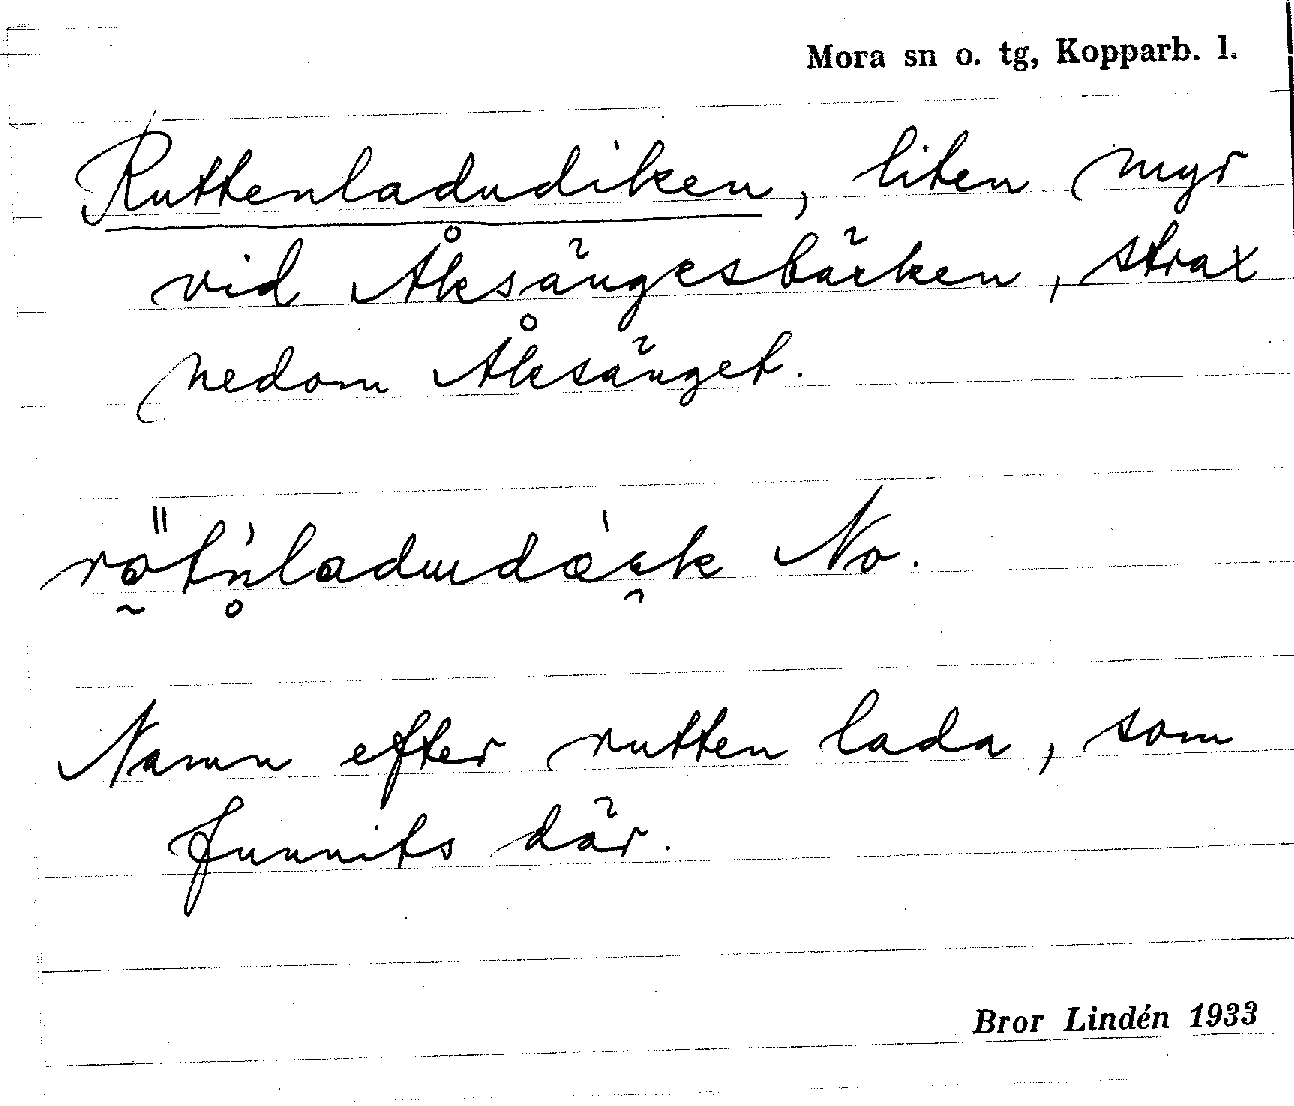 Mora sn o. tg, Kopparb. l.
Ruttenladudiken, liten myr
vid Åksängesbäcken, strax
nedom Åksänget.
No.
Namn efter rutten lada, som
funnits där.
Bror Lindén 1933